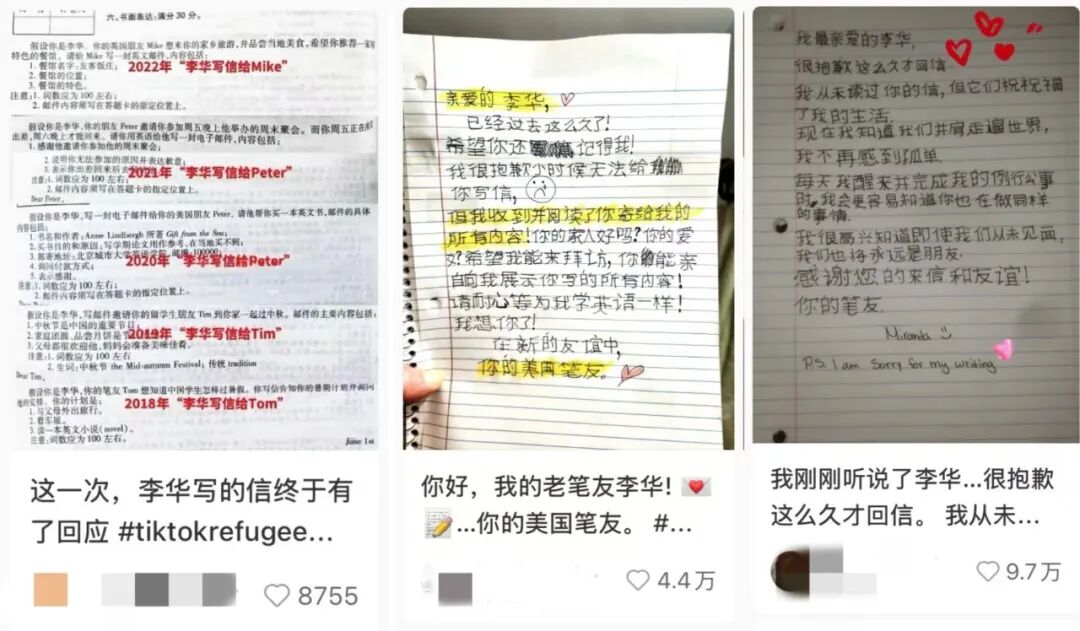 六、书面表达:满分 30 分。
假设你是李华,你的英国朋友 Mike 想来你的家乡旅游,并品尝当地美食,希望你推荐一家
特色的餐馆。请给 Mike 写一封英文邮件,内容包括:
1. 餐馆名字:友客饭庄;
2022年“李华写信给Mike”
2. 餐馆的位置;
3. 餐馆的特色。
注意:1. 词数应为 100 左右;
2. 邮件内容须写在答题卡的指定位置上。
假设你是李华,你的朋友 Peter 邀请你参加周五晚上他举办的周末聚会。而你周五正在外
出差,周六晚上才能回来。请你用英语给他写一封电子邮件,内容包括:
1. 感谢他邀请你参加他的周末聚会;
2. 说明你无法参加的原因并表达歉意;
3. 表示你出差回来后
2021年“李华写信给Peter”
注意:1. 词数应为 100 左右;
2. 邮件内容须写在答题卡的指定位置上。
Dear Peter,
假设你是李华,写一封电子邮件给你的美国朋友 Peter,请他帮你买一本英文书,邮件的具体
内容包括:
1. 书名和作者:Anne Lindbergh 所著 Gift from the Sea;
2. 买书目的和原因:写学期论文用作参考,在当地买不到;
3. 邮寄地址:北京城市大学
2020年“李华写信给Peter”
4. 询问付款方式;
5. 表示感谢。
注意:1. 词数应为 100 左右;
2. 邮件内容须写在答题卡的指定位置上。
假设你是李华,写邮件邀请你的留学生朋友 Tim 到你家一起过中秋。邮件的主要内容包括:
1. 中秋节是中国的重要节日;
2. 家庭团圆,品尝月饼是
2019年“李华写信给Tim”
3. 父母都很欢迎他,妈妈会准备美味佳肴。
注意:1. 词数应为 100 左右
2. 生词:中秋节 the Mid-autumn Festival;传统 tradition
Dear Tim,
假设你是李华,你的笔友 Tom 想知道中国学生怎样过暑假。你写信告知你的暑期计划并询问
他的安排。你的计划是:
1. 与父母外出旅行。
2018年“李华写信给Tom”
2. 看车展。
3. 读一本英文小说(novel)。
注意:词数应为 100 左右。
June 1st
这一次,李华写的信终于有
了回应 #tiktokrefugee...
8755
亲爱的 李华,
已经过去这么久了!
希望你还记得我!
我很抱歉小时候无法给
你写信,
但我收到并阅读了你寄给我的
所有内容!你的家人好吗?你的爱
好?希望我能来拜访,你能亲
自向我展示你写的所有内容!
请耐心等为我学英语一样!
我想你了!
在新的友谊中,
你的美国笔友。
你好,我的老笔友李华!
...你的美国笔友。 #...
4.4万
我最亲爱的李华,
很抱歉这么久才回信
我从未读过你的信,但它们祝祝福
了我的生活.
现在我知道我们并肩走遍世界,
我不再感到孤单.
每天我醒来并完成我的例行公事
时,我会更容易知道你也在做同样
的事情.
我很高兴知道即使我们从未见面,
我们也将永远是朋友.
感谢您的来信和友谊!
你的笔友
Miranda
P.S. I am sorry for my writing
我刚刚听说了李华...很抱歉
这么久才回信。 我从未...
9.7万